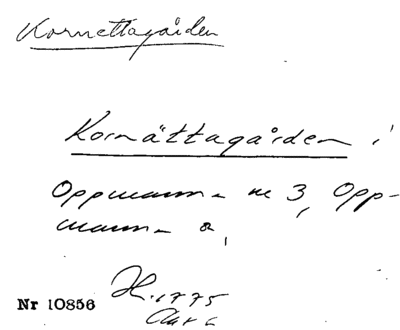 Kornettagården
Kornättagården i
Oppmanna nr 3, Opp-
manna s,
H. 1775
Nr 10856